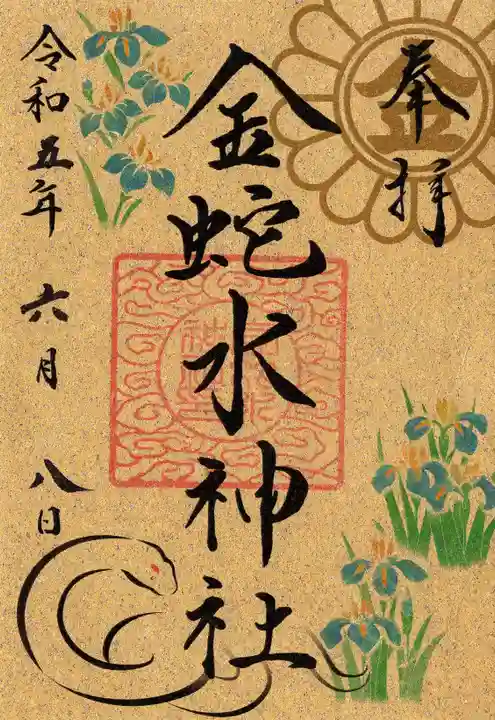 奉拝
金
金蛇水神社
令和五年 六月 八日